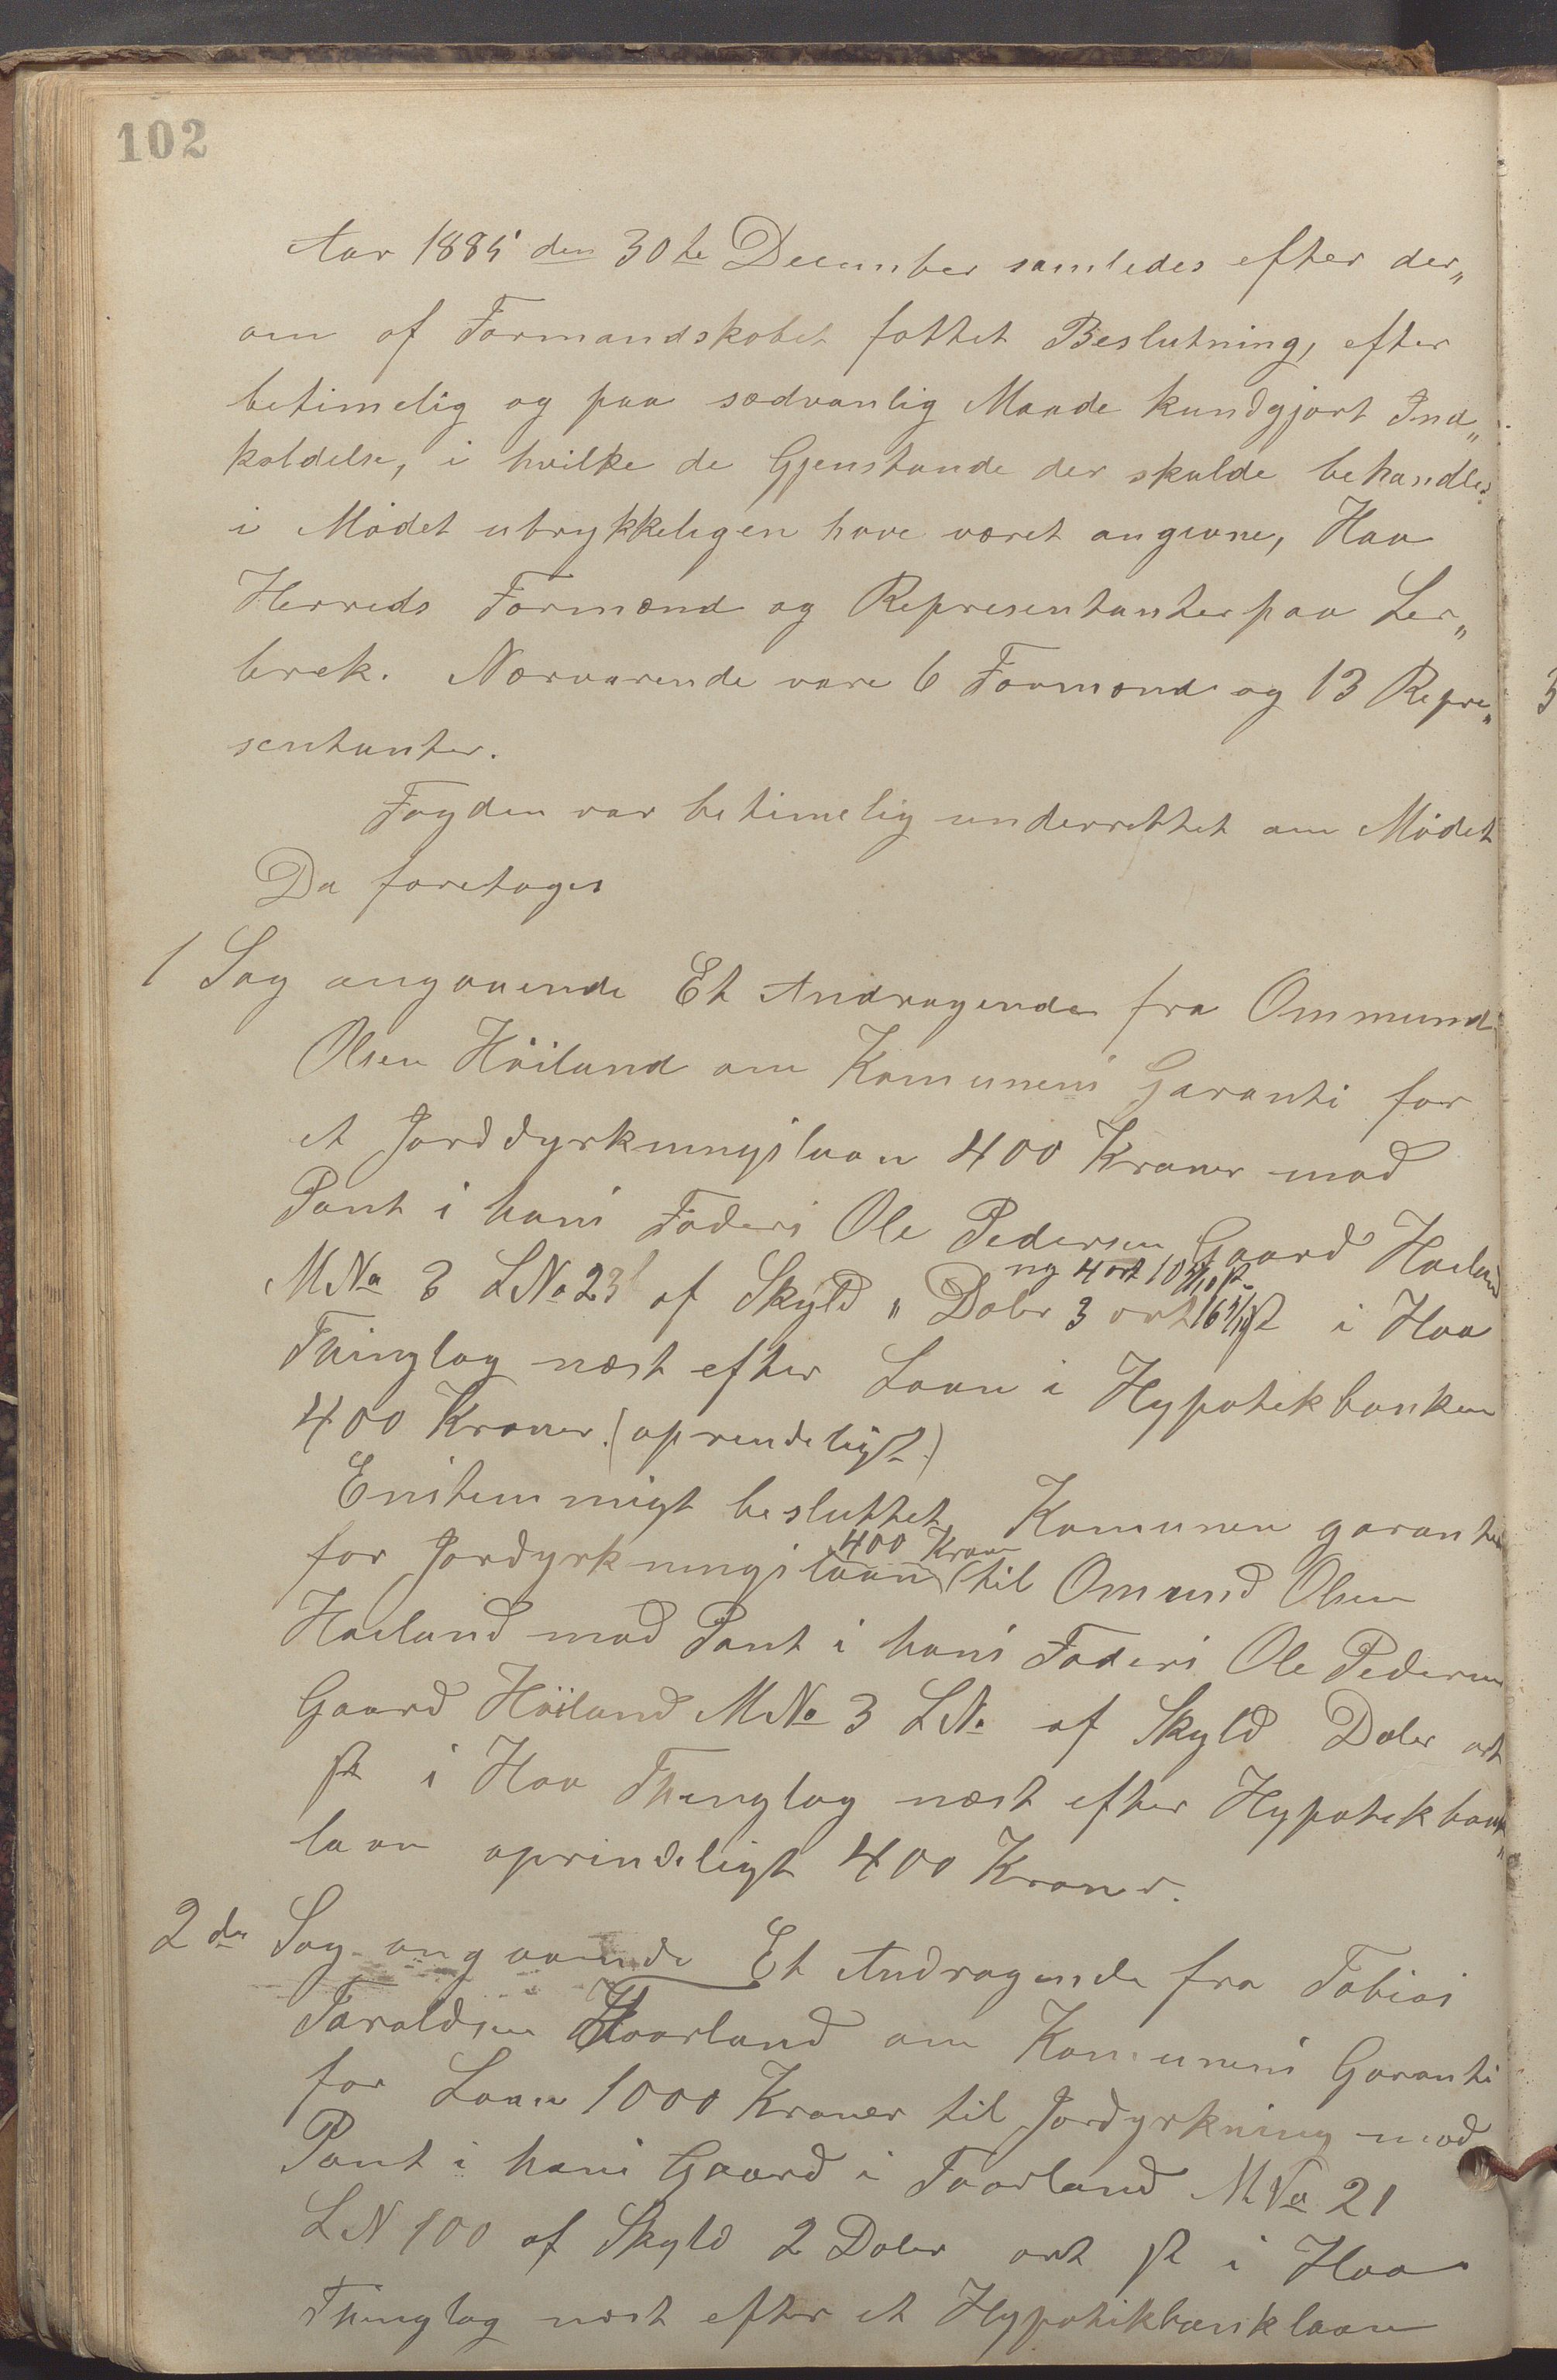 102
Aar 1885 den 30te December samledes efter der„
om af Formandskabet fattet Beslutning, efter
betimelig og paa sædvanlig Maade kundgjort Ind„
kaldelse, i hvilke de Gjenstande der skulde behandles
i Mødet utrykkeligen have været angivne, Haa
Herreds Formænd og Representanter paa Ler„
brek. Nærværende vare 6 Formænd og 13 Repre„
sentanter.
Fogden var betimelig underrettet om Mødet
Da foretoges
1 Sag angaaende Et Andragende fra Ommund
Olsen Höiland om Komunens Garanti for
et Jorddyrkningslaan 400 Kroner mod
Pant i hans Faders Ole Pedersen Gaard Høiland
ny 4 ort
M No 3 L No 23 af Skyld „ Daler 3 ort 16 ß i Haa
Thinglag næst efter Laan i Hypotekbanken
400 Kroner. (oprindeligt.)
Enstemmigt besluttet, Komunen garanterer
400 Kroner
for Jordyrkningslaan til Omund Olsen
Høiland mod Pant i hans Faders Ole Pedersen
Gaard Höiland M No 3 L No af Skyld Daler ort
ß i Haa Thinglag næst efter Hypotekbank„
laan oprindeligt 400 Kroner.
2den Sag angaaende Et Andragende fra Tobias
Taraldsen Haarland om Komunens Garanti
for Laan 1000 Kroner til Jordyrkning mod
Pant i hans Gaard i Taarland M No 21
L N 100 af Skyld 2 Daler ort ß i Haa
Thinglag næst efter et Hypotikbanklaan